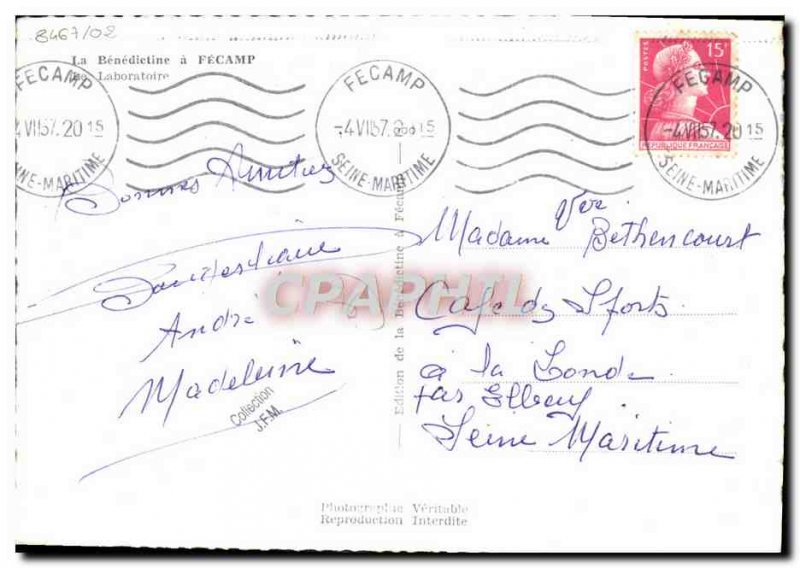 8467/02
La Bénédictine à FÉCAMP
Le Laboratoire
FECAMP
4 VII 57. 20 15
SEINE-MARITIME
FECAMP
-4 VII 57. 20 15
SEINE-MARITIME
POSTES 15F
REPUBLIQUE FRANÇAISE
FECAMP
-4 VII 57. 20 15
SEINE-MARITIME
Bonnes Amitiés
André
Madeleine
Collection
J.F.M.
Edition de la Bénédictine à Fécamp
CPAPHIL
Vve
Madame Bethencourt
Café des Sports
à la Londe
par Elbeuf
Seine Maritime
Photographie Véritable
Reproduction Interdite